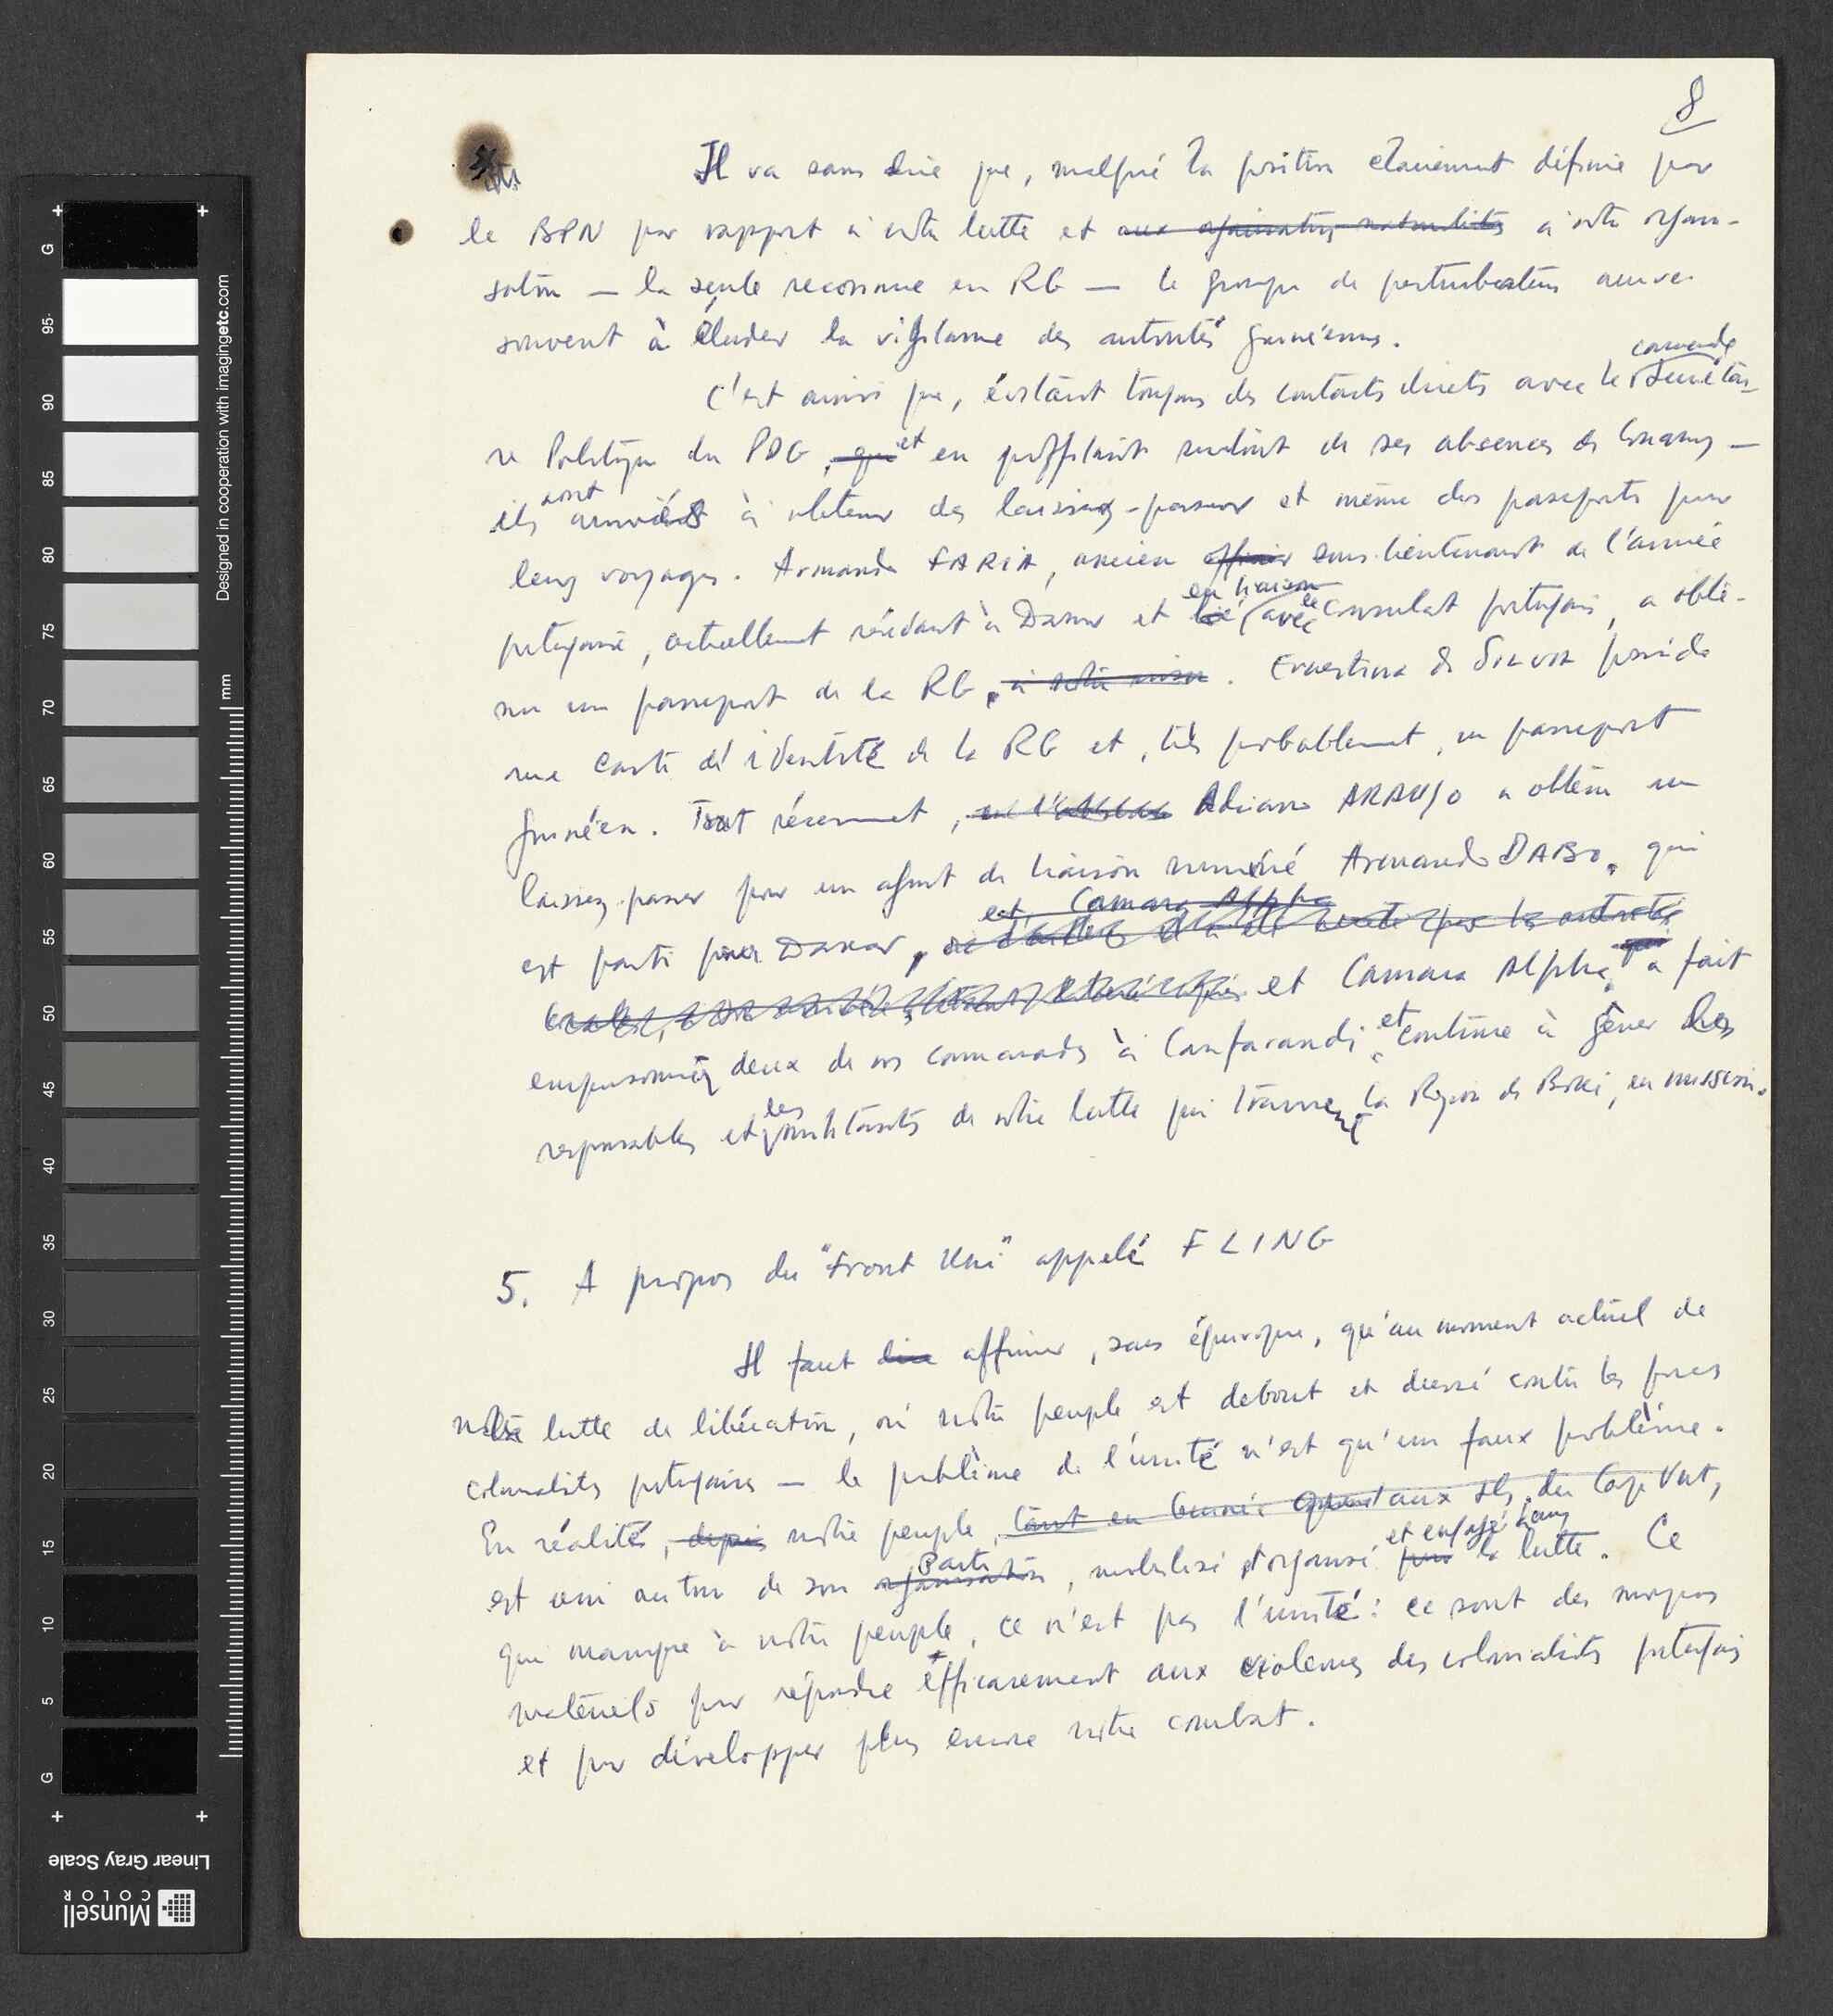 8
Il va sans dire que, malgré la position clairement définie par
le BPN par rapport à notre lutte et aux organisations nationalistes à notre organi-
sation — la seule reconnue en RG — le groupe de perturbateurs arrive
souvent à éluder la vigilance des autorités guinéennes.
camarade
C'est ainsi que, évitant toujours des contacts directs avec le Secrétai-
re Politique du PDG, qui et en profitant surtout de ses absences de Conakry —
ils sont arrivés à obtenir des laissez-passer et même des passeports pour
leurs voyages. Armando FARIA, ancien officier sous-lieutenant de l'armée
portugaise, actuellement résidant à Dakar et lié en liaison avec le consulat portugais, a obte-
nu un passeport de la RG, à notre insu. Ernestina de SILVA possède
une carte d'identité de la RG et, très probablement, un passeport
guinéen. Tout récemment, en l'absence Adriano ARAUJO a obtenu un
laissez-passer pour un agent de liaison nommé Armando DABO, qui
et Camara Alpha
est parti pour Dakar, par les autorités
et Camara Alpha, qui a fait
emprisonner deux de nos camarades à Canfarandi et continue à gêner les
responsables et les militants de notre lutte qui traversent la Région de Boké, en mission.
5. A propos du "Front Uni" appelé FLING
Il faut dire affirmer, sans équivoque, qu'au moment actuel de
notre lutte de libération, où notre peuple est debout et dressé contre les forces
colonialistes portugaises — le problème de l'unité n'est qu'un faux problème.
En réalité, depuis notre peuple, tant en Guinée qu'aux Iles du Cap Vert,
est uni autour de son organisation Parti, mobilisé et organisé pour et engagé dans la lutte. Ce
qui manque à notre peuple, ce n'est pas l'unité: ce sont des moyens
matériels pour répondre efficacement aux violences des colonialistes portugais
et pour développer plus encore notre combat.
Designed in cooperation with imagingetc.com
mm
G
95
90
85
80
75
70
65
60
55
50
45
40
35
30
25
20
15
10
5
G
Linear Gray Scale
Munsell
COLOR